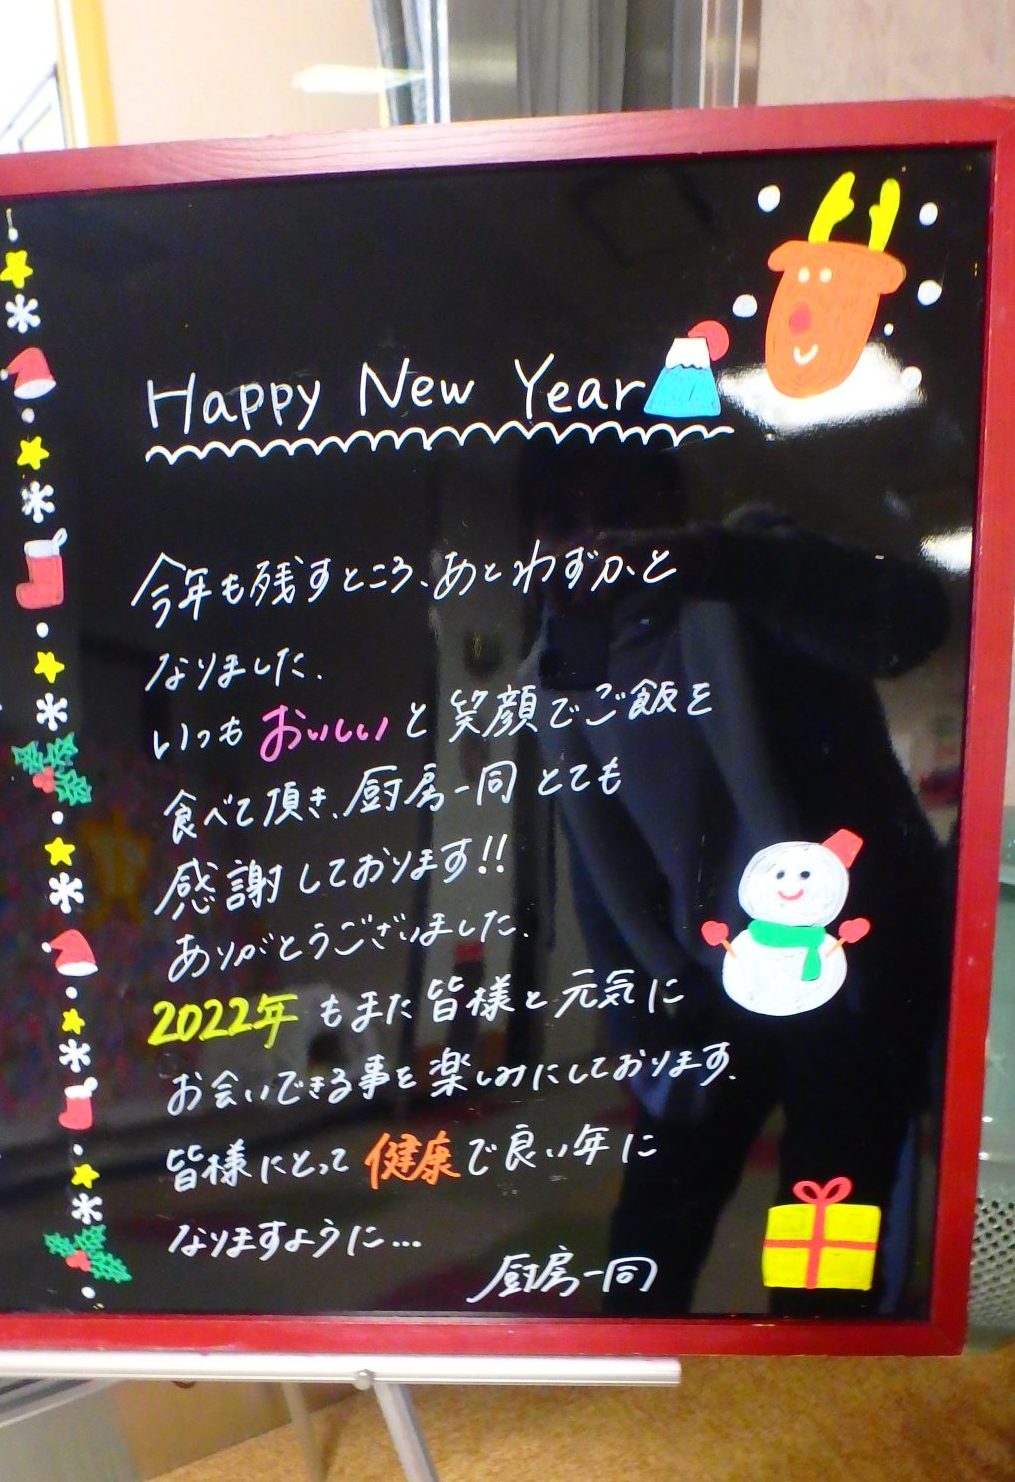 Happy New Year
今年も残すところ、あとわずかと
なりました.
いつもおいしいと笑顔でご飯を
食べて頂き、厨房一同とても
感謝しております!!
ありがとうございました.
2022年もまた皆様と元気に
お会いできる事を楽しみにしております.
皆様にとって健康で良い年に
なりますように…
厨房一同